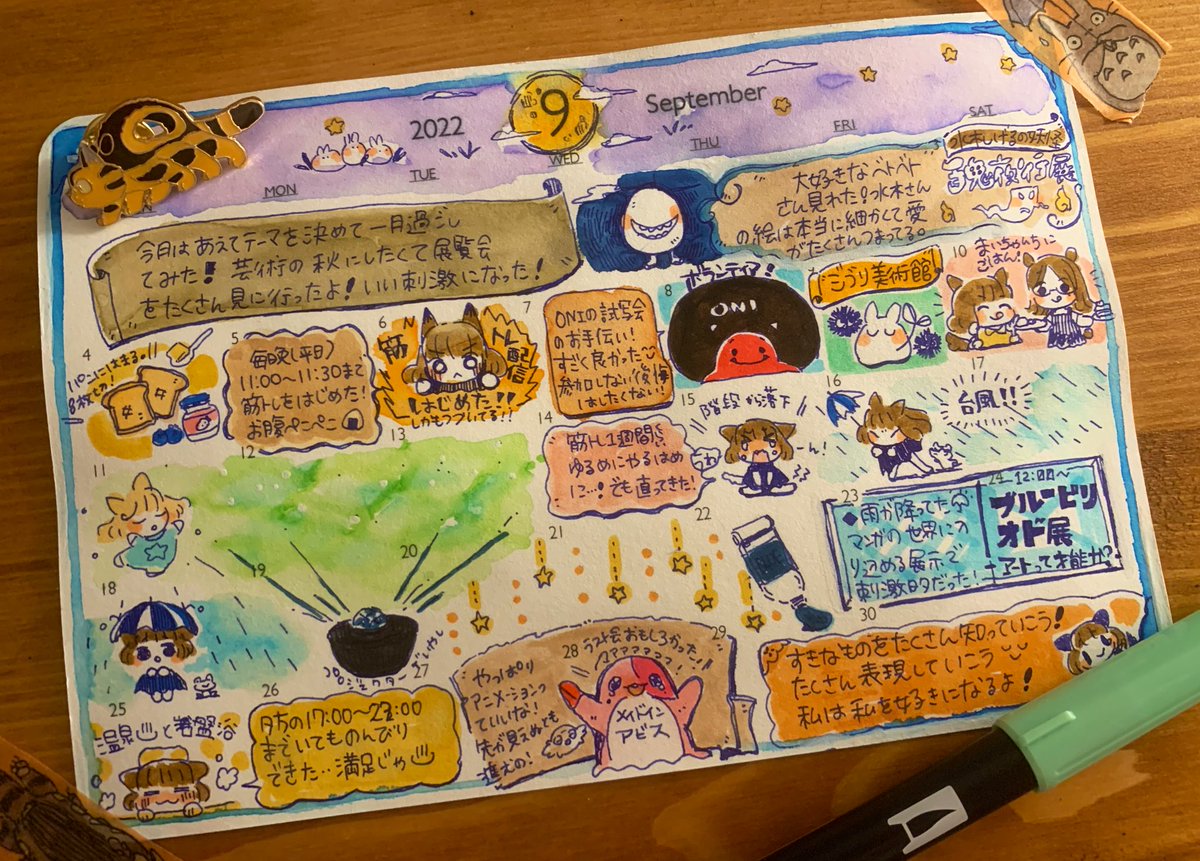 2022
9
September
MON
TUE
WED
THU
FRI
SAT
今月はあえてテーマを決めて一月過ごし
てみた！芸術の秋にしたくて展覧会
をたくさん見に行ったよ！いい刺激になった！
大好きなベトベト
さん見れた！水木さん
の絵は本当に細かくて愛
がたくさんつまってる。
水木しげるの妖怪
百鬼夜行展
4
パンにはまる!!
8枚とか！
5
毎晩(平日)
11:00〜11:30まで
筋トレをはじめた！
お腹ペンペン
6
筋トレ配信
はじめた！
しかもつづいてる!!
7
ONIの試写会
のお手伝い！
すごく良かった
参加しない後悔
はしたくない！
8
ボランティア！
ONI
ジブリ美術館
10
まいちゃんちに
ごはん！
11
12
13
14
筋トレ1週間
ゆるめにやるはめ
に…！でも直ってきた！
15
階段から落下
うわ
〜ん！
16
17
台風!!
18
19
20
プロジェクター
21
22
23
◆雨が降ってた
マンガの世界にの
り込める展示で
刺激的だった！
24
12:00〜
ブルーピリ
オド展
アートって才能か？
25
温泉と岩盤浴
26
夕方の17:00〜23:00
までいてものんびり
できた…満足じゃ
27
やっぱり
アニメーションっ
ていいな！
先が見えぬとも
進むの！
28
ラスト会おもしろかった!!
メイドイン
アビス
29
30
すきなものをたくさん知っていこう！
たくさん表現していこう
私は私を好きになるよ！